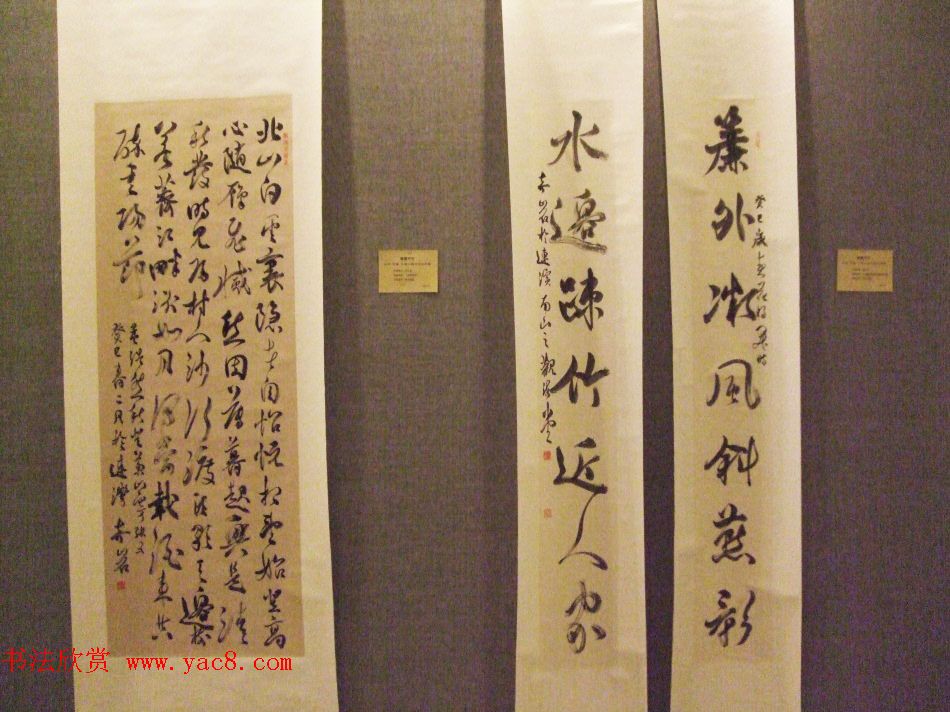 簾外微風斜燕影
癸巳歲
水邊踈竹近人家
南山之觀海堂
北山白雲裏隱者自怡悅相望始登高
心隨雁飛滅愁因薄暮起興是清
秋發時見歸村人沙行渡頭歇天邊樹
若薺江畔洲如月何當載酒來共
醉重陽節
孟浩然秋登蘭山寄張五
癸巳春二月於連灣
书法欣赏 www.yac8.com